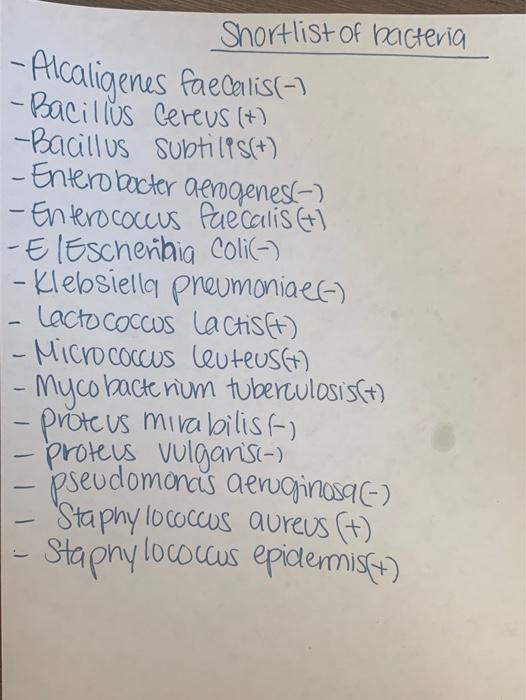 Shortlist of bacteria
- Alcaligenes faecalis(-)
- Bacillus Cereus (+)
- Bacillus subtilis(+)
- Enterobacter aerogenes(-)
- Enterococcus faecalis(+)
- E/Escheribia Coli(-)
- Klebsiella pneumoniae(-)
- Lactococcus Lactis(+)
- Micrococcus leuteus(+)
- Mycobacterium tuberculosis(+)
- proteus mirabilis(-)
- proteus vulgaris(-)
- pseudomonas aeruginosa(-)
- Staphylococcus aureus (+)
- Staphylococcus epidermis(+)